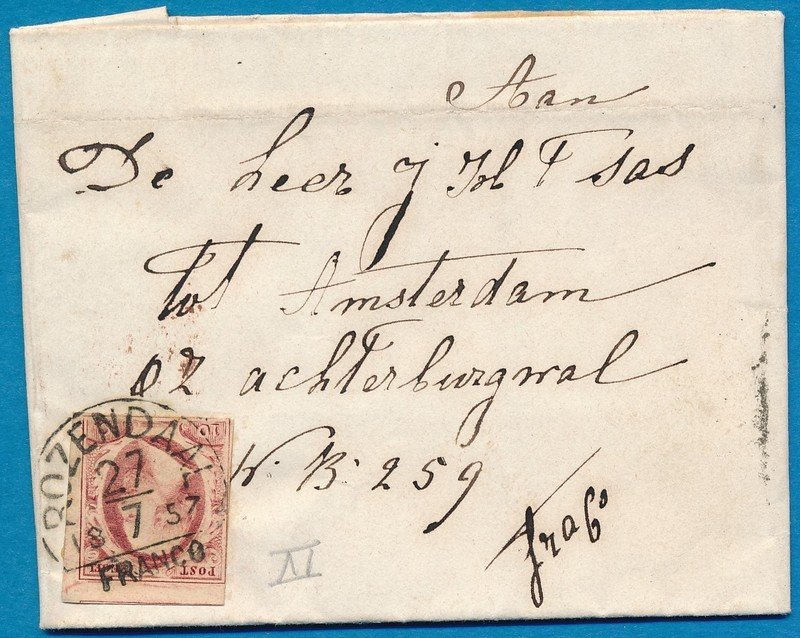 Aan
De heer J Kol F sas
tot Amsterdam
oz achterburgwal
N. B: 259
fraco
ROZENDAAL
27
18 7 57
FRANCO
POST
10 C
VI